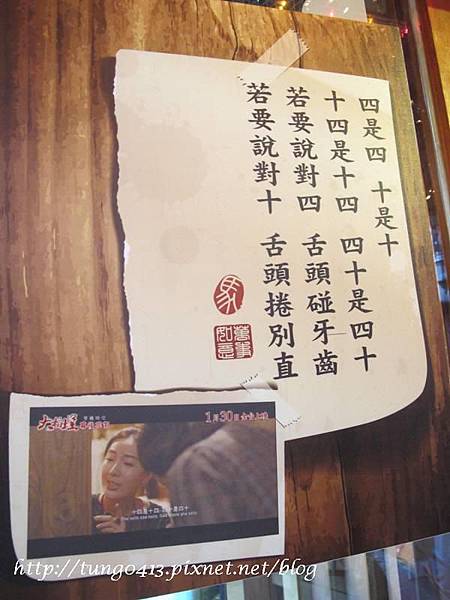 四是四 十是十
十四是十四 四十是四十
若要說對四 舌頭碰牙齒
若要說對十 舌頭捲別直
馬
萬事如意
大稻埕
1月30日
十四是十四 四十是四十
http://tungo413.pixnet.net/blog